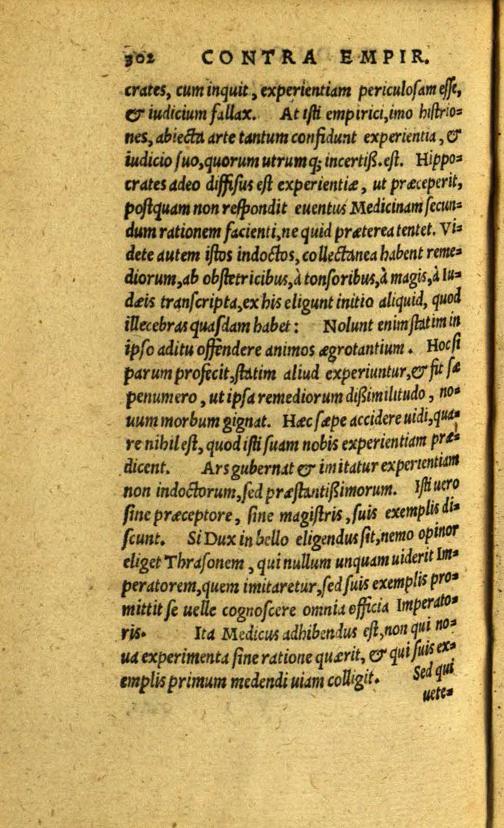 302 CONTRA EMPIR.
crates, cum inquit, experientiam periculosam esse,
& iudicium fallax. At isti empirici, imo histrio=
nes, abiecta arte tantum confidunt experientia, &
iudicio suo, quorum utrumq; incertiß. est. Hippo=
crates adeo diffisus est experientiæ, ut præceperit,
postquam non respondit euentus Medicinam secun=
dum rationem facienti, ne quid præterea tentet. Vi=
dete autem istos indoctos, collectanea habent reme=
diorum, ab obstetricibus, à tonsoribus, à magis, à Iu=
dæis transcripta, ex his eligunt initio aliquid, quod
illecebras quasdam habet: Nolunt enim statim in
ipso aditu offendere animos ægrotantium. Hoc si
parum profecit, statim aliud experiuntur, & fit sæ
penumero, ut ipsa remediorum dißimilitudo, no=
uum morbum gignat. Hæc sæpe accidere uidi, qua=
re nihil est, quod isti suam nobis experientiam præ=
dicent. Ars gubernat & imitatur experientiam
non indoctorum, sed præstantißimorum. Isti uero
sine præceptore, sine magistris, suis exemplis di=
scunt. Si Dux in bello eligendus sit, nemo opinor
eliget Thrasonem, qui nullum unquam uiderit Im=
peratorem, quem imitaretur, sed suis exemplis pro=
mittit se uelle cognoscere omnia officia Imperato=
ris. Ita Medicus adhibendus est, non qui no=
ua experimenta sine ratione quærit, & qui suis ex=
emplis primum medendi uiam colligit. Sed qui
uete=